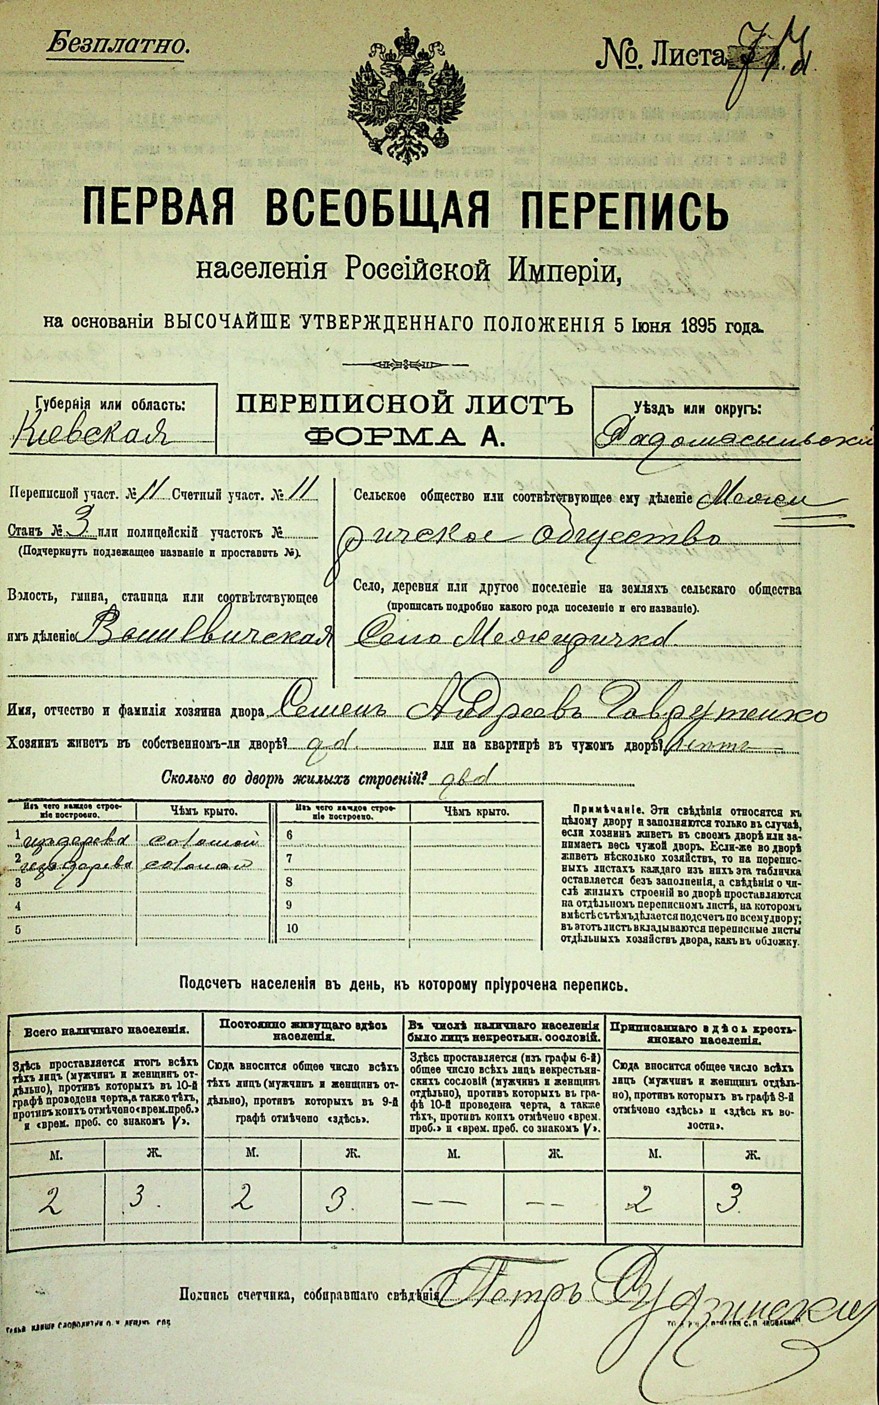 Безплатно.
№. Листа
ПЕРВАЯ ВСЕОБЩАЯ ПЕРЕПИСЬ
населенія Россійской Имперіи,
на основаніи ВЫСОЧАЙШЕ УТВЕРЖДЕННАГО ПОЛОЖЕНІЯ 5 Іюня 1895 года.
Губернія или область:
Кіевская
ПЕРЕПИСНОЙ ЛИСТЪ
ФОРМА А.
Уѣздъ или округъ:
Радомысльскій
Переписной участ. № 11 Счетный участ. № 11
Станъ № 3 или полицейскій участокъ №
(Подчеркнуть подлежащее названіе и проставить №).
Волость, гмина, станица или соотвѣтствующее
имъ дѣленіе
Сельское общество или соотвѣтствующее ему дѣленіе Межи
ричское общество
Село, деревня или другое поселеніе на земляхъ сельскаго общества
(прописать подробно какого рода поселеніе и его названіе).
Село Межиричка
Имя, отчество и фамилія хозяина двора Семенъ Андреевъ Гаврутенко
Хозяинъ живетъ въ собственномъ-ли дворѣ? да или на квартирѣ въ чужомъ дворѣ?
Сколько во дворѣ жилыхъ строеній? два
Изъ чего каждое строеніе построено.
Чѣмъ крыто.
Изъ чего каждое строеніе построено.
Чѣмъ крыто.
1 издерева соломой
2 издерева солом
3
4
5
6
7
8
9
10
Примѣчаніе. Эти свѣдѣнія относятся къ
цѣлому двору и заполняются только въ случаѣ,
если хозяинъ живетъ въ своемъ дворѣ или за-
нимаетъ весь чужой дворъ. Если-же во дворѣ
живетъ нѣсколько хозяйствъ, то на перепис-
ныхъ листахъ каждаго изъ нихъ эта табличка
оставляется безъ заполненія, а свѣдѣнія о чи-
слѣ жилыхъ строеній во дворѣ проставляются
на отдѣльномъ переписномъ листѣ, на которомъ
вмѣстѣ съ тѣмъ дѣлается подсчетъ по всему двору;
въ этотъ листъ вкладываются переписные листы
отдѣльныхъ хозяйствъ двора, какъ въ обложку.
Подсчетъ населенія въ день, къ которому пріурочена перепись.
Всего наличнаго населенія.
Здѣсь проставляется итогъ всѣхъ
тѣхъ лицъ (мужчинъ и женщинъ от-
дѣльно), противъ которыхъ въ 10-й
графѣ проведена черта, а также тѣхъ,
противъ коихъ отмѣчено «врем. преб.»
и «врем. преб. со знакомъ V».
Постоянно живущаго здѣсь
населенія.
Сюда вносится общее число всѣхъ
тѣхъ лицъ (мужчинъ и женщинъ от-
дѣльно), противъ которыхъ въ 9-й
графѣ отмѣчено «здѣсь».
Въ числѣ наличнаго населенія
было лицъ некрестьян. сословій.
Здѣсь проставляется (изъ графы 6-й)
общее число всѣхъ лицъ некрестьян-
скихъ сословій (мужчинъ и женщинъ
отдѣльно), противъ которыхъ въ гра-
фѣ 10-й проведена черта, а также
тѣхъ, противъ коихъ отмѣчено «врем.
преб.» и «врем. преб. со знакомъ V».
Приписаннаго здѣсь кресть-
янскаго населенія.
Сюда вносится общее число всѣхъ
лицъ (мужчинъ и женщинъ отдѣль-
но), противъ которыхъ въ графѣ 8-й
отмѣчено «здѣсь» и «здѣсь къ во-
лости».
М. Ж. М. Ж. М. Ж. М. Ж.
2 3. 2 3. — — — — 2 3
Подпись счетчика, собиравшаго свѣдѣнія Петръ